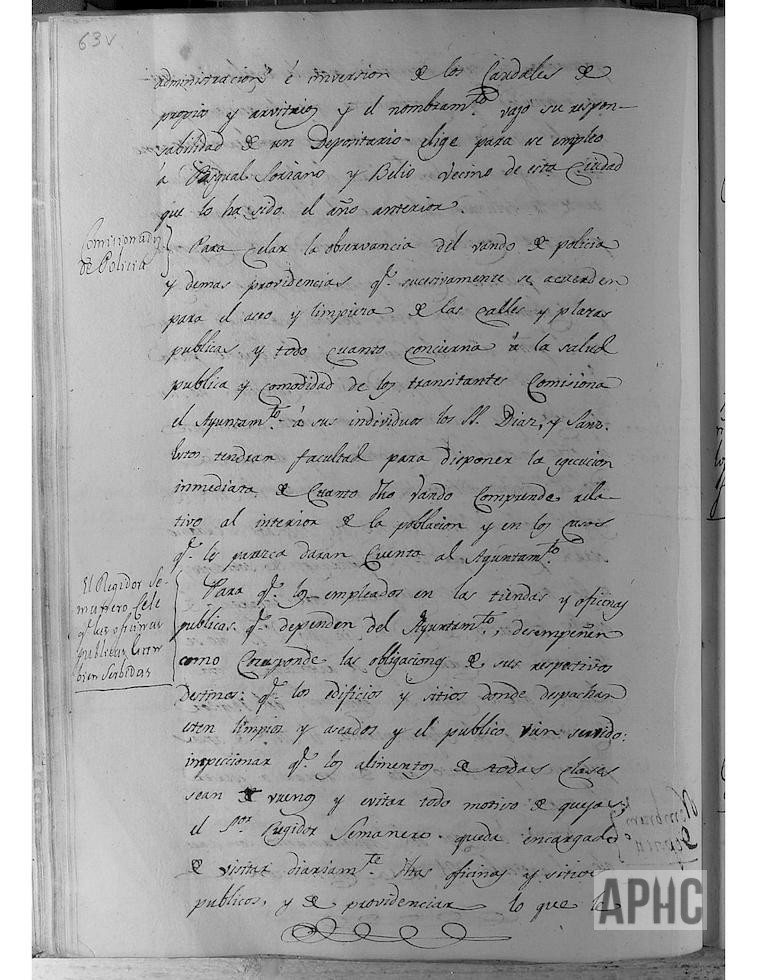 63v
administracion è inversion de los Caudales de
propios y arvitrios y el nombram.to vajo su respon-
sabilidad de un Depositario elige para ese empleo
à Pasqual Soriano y Belio vecino de esta Ciudad
que lo ha sido el año anterior.
Comisionados
de Policia
Para Celar la observancia del vando de policia
y demas providencias q.e sucesivamente se acuerden
para el aseo y limpieza de las calles y plazas
publicas y todo cuanto concierna à la salud
publica y comodidad de los transitantes Comisiona
el Ayuntam.to à sus individuos los SS. Diaz, y Sanz.
Estos tendran facultad para disponer la egecucion
inmediata de Cuanto dho vando Comprende rela-
tivo al interior de la poblacion y en los casos
q.e les parezca daran Cuenta al Ayuntam.to
El Regidor Se-
manero Cele
q.e las oficinas
publicas esten
bien Serbidas
Para q.e los empleados en las tiendas y oficinas
publicas q.e dependen del Ayuntam.to, desempeñen
como Corresponde las obligaciones de sus respectivos
destinos: q.e los edificios y sitios donde despachan
esten limpios y aseados y el publico vien servido:
inspeccionar q.e los alimentos de todas clases
sean de vuenos y evitar todo motivo de quejas;
el S.or Regidor Semanero queda encargado
de visitar diariam.te dhas oficinas y sitios
publicos, y de providenciar lo que le
APHC